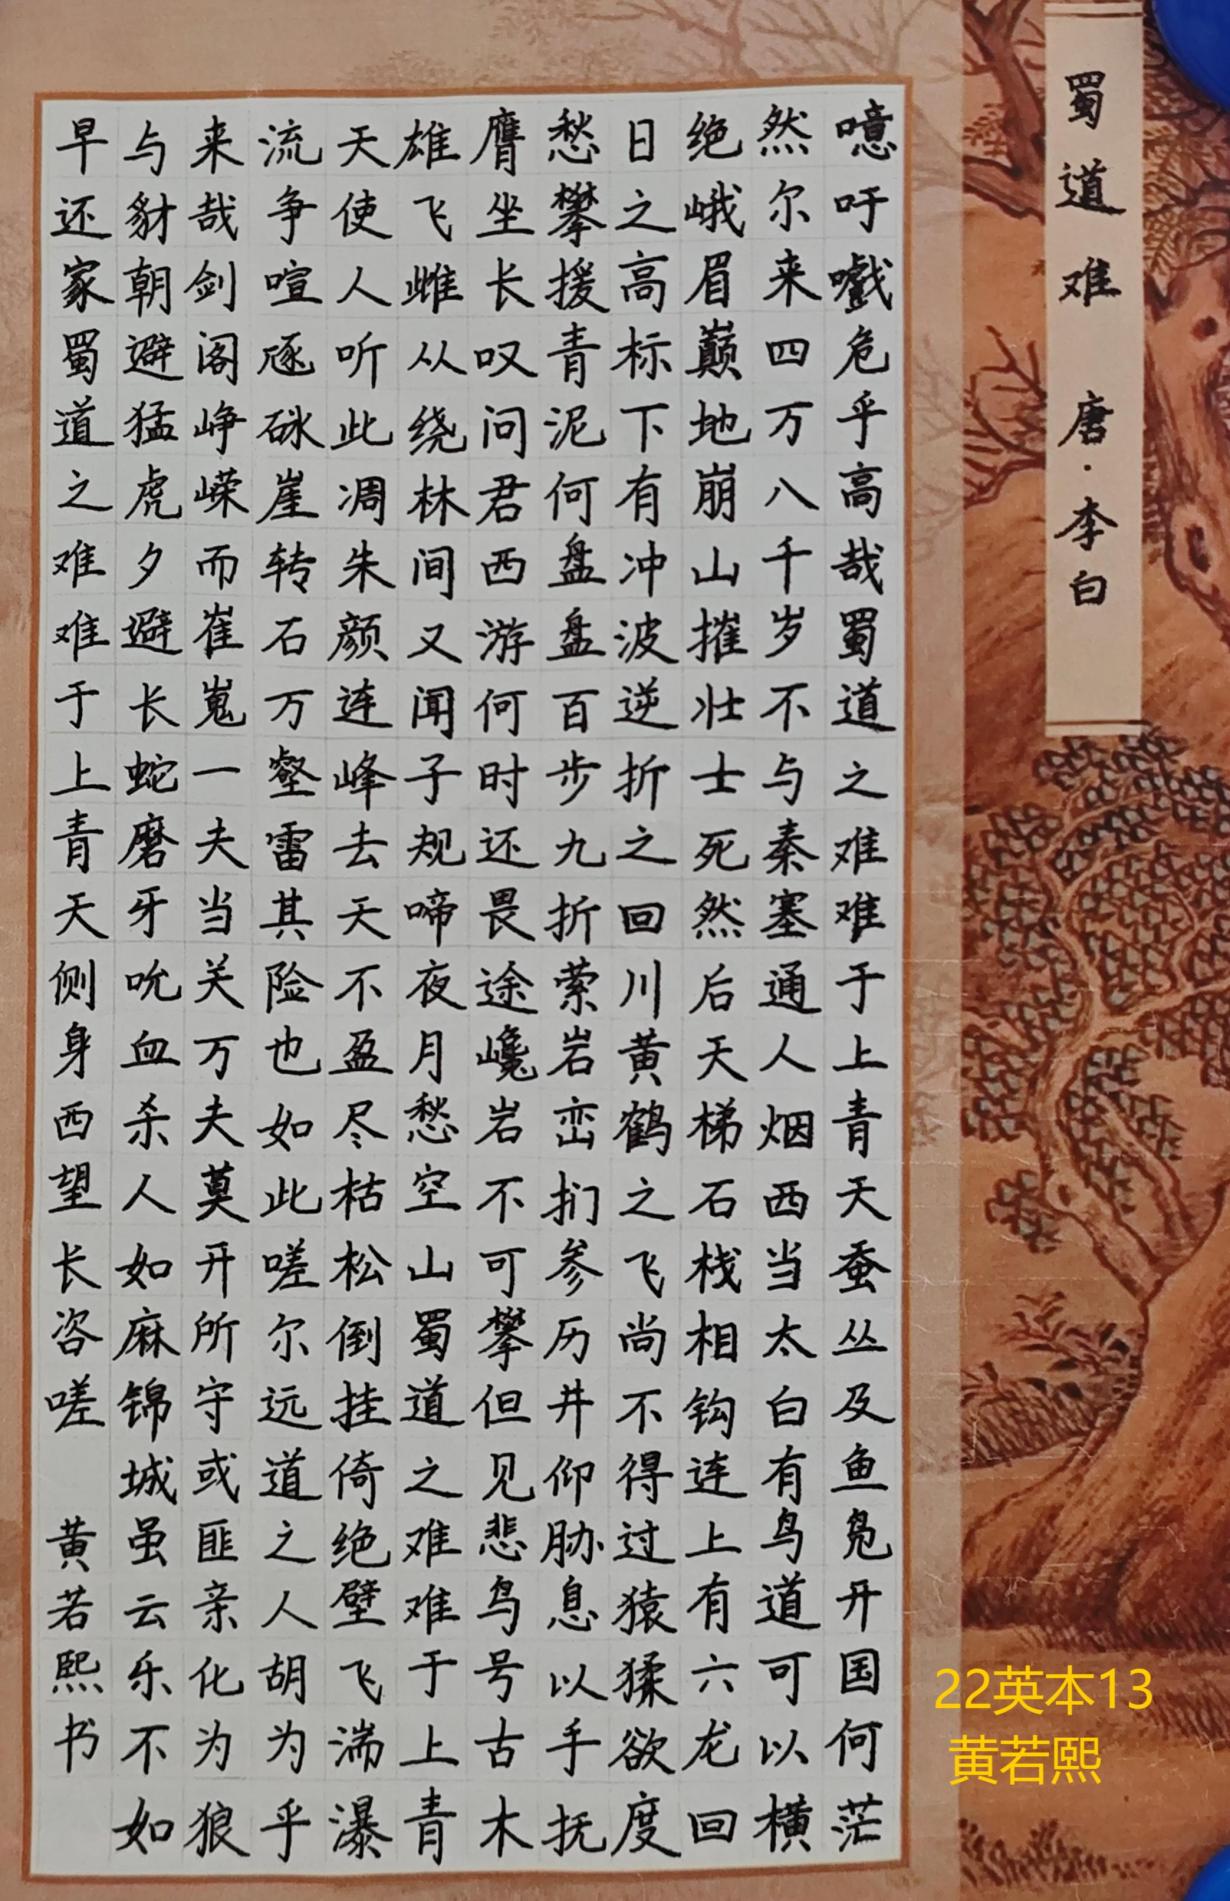 蜀道难 唐·李白
噫吁嚱危乎高哉蜀道之难难于上青天蚕丛及鱼凫开国何茫
然尔来四万八千岁不与秦塞通人烟西当太白有鸟道可以横
绝峨眉巅地崩山摧壮士死然后天梯石栈相钩连上有六龙回
日之高标下有冲波逆折之回川黄鹤之飞尚不得过猿猱欲度
愁攀援青泥何盘盘百步九折萦岩峦扪参历井仰胁息以手抚
膺坐长叹问君西游何时还畏途巉岩不可攀但见悲鸟号古木
雄飞雌从绕林间又闻子规啼夜月愁空山蜀道之难难于上青
天使人听此凋朱颜连峰去天不盈尽枯松倒挂倚绝壁飞湍瀑
流争喧豗砯崖转石万壑雷其险也如此嗟尔远道之人胡为乎
来哉剑阁峥嵘而崔嵬一夫当关万夫莫开所守或匪亲化为狼
与豺朝避猛虎夕避长蛇磨牙吮血杀人如麻锦城虽云乐不如
早还家蜀道之难难于上青天侧身西望长咨嗟 黄若熙书
22英本13
黄若熙